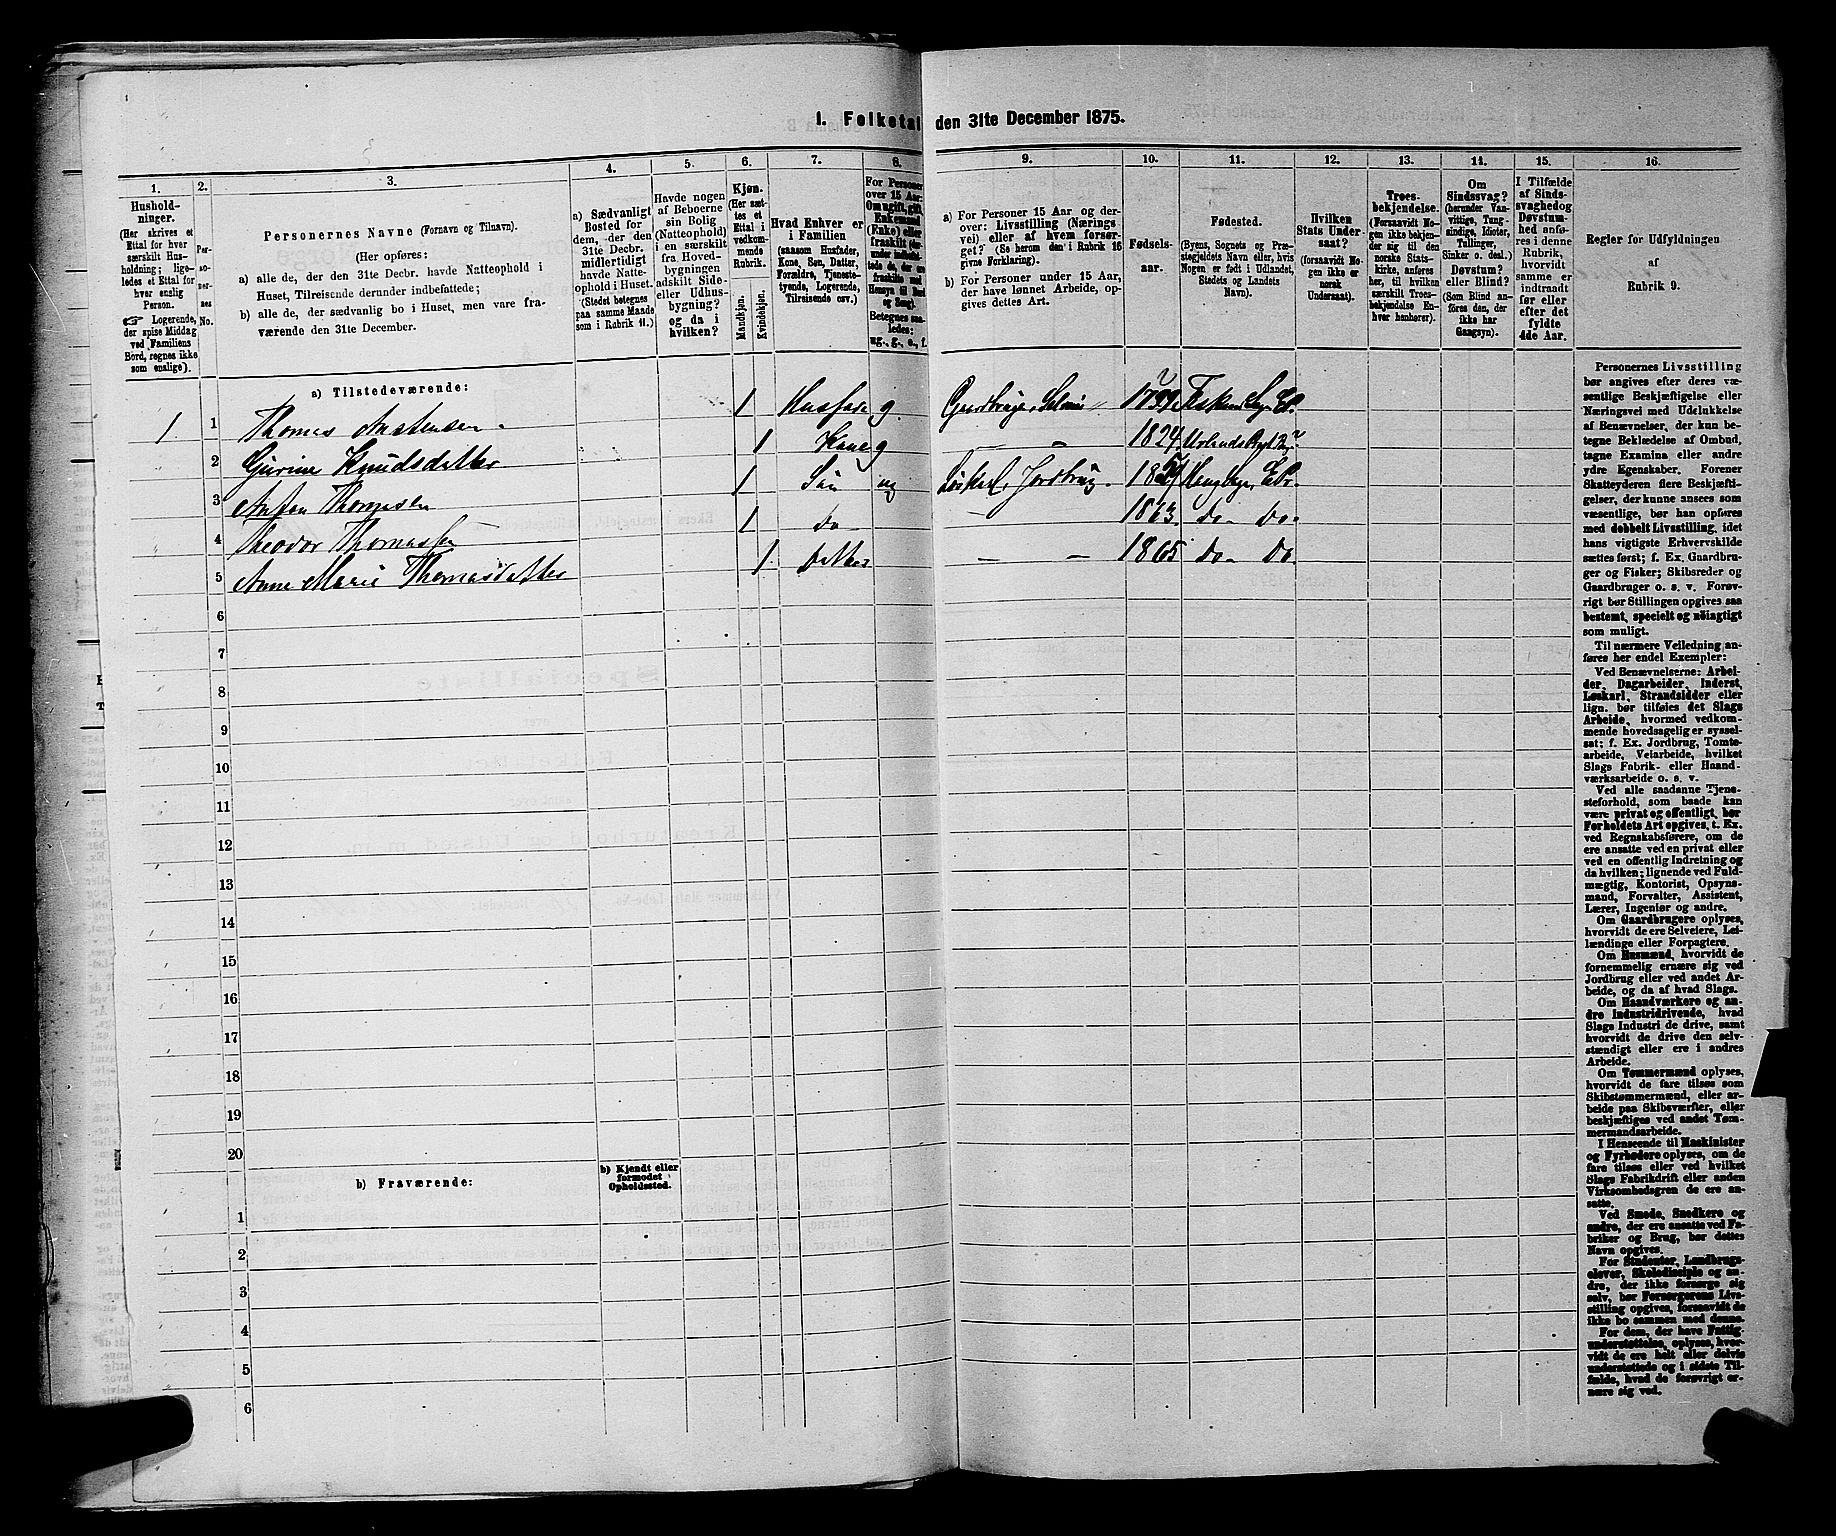 1. Folketal den 31te December 1875.
1.
Hushold-
ninger.
(Her skrives et
Ettal for hver
særskilt Hus-
holdning; lige-
ledes et Ettal for
hver enslig
Person.
Logerende,
der spise Middag
ved Familiens
Bord, regnes ikke
som enslige).
2.
Per-
so-
ner-
nes
No.
3.
Personernes Navne (Fornavn og Tilnavn).
(Her opføres:
a) alle de, der den 31te Decbr. havde Natteophold i
Huset, Tilreisende derunder indbefattede;
b) alle de, der sædvanlig bo i Huset, men vare fra-
værende den 31te December.
4.
a) Sædvanligt
Bosted for
dem, der den
31te Decbr.
midlertidigt
havde Natte-
ophold i Huset.
(Stedet betegnes
paa samme Maade
som i Rubrik 11.)
5.
Havde nogen
af Beboerne
sin Bolig
(Natteophold)
i en særskilt
fra Hoved-
bygningen
adskilt Side-
eller Udhus-
bygning?
og da i
hvilken?
6.
Kjøn.
(Her sæt-
tes et
Ettal i
vedkom-
mende
Rubrik.
Mandkjøn.
Kvindekjøn.
7.
Hvad Enhver er
i Familien
(saasom Husfader,
Kone, Søn, Datter,
Forældre, Tjeneste-
tyende, Logerende,
Tilreisende osv.)
8.
For Personer
over 15 Aar:
Om ugift, gift,
Enkemand
(Enke) eller
fraskilt
Betegnes saa-
ledes:
ug., g., e., f.
9.
a) For Personer 15 Aar og der-
over: Livsstilling (Nærings-
vei) eller af hvem forsør-
get? (Se herom den i Rubrik 16
givne Forklaring).
b) For Personer under 15 Aar,
der have lønnet Arbeide, op-
gives dettes Art.
10.
Fødsels-
aar.
11.
Fødested.
(Byens, Sognets og Præ-
stegjeldets Navn eller, hvis
Nogen er født i Udlandet,
Stedets og Landets
Navn).
12.
Hvilken
Stats Under-
saat?
(forsaavidt No-
gen ikke er
norsk
Undersaat).
13.
Troes-
bekjendelse.
(Forsaavidt No-
gen ikke bekjen-
der sig til den
norske Stats-
kirke, anføres
her, til hvilken
særskilt Troes-
bekjendelse En-
hver henhører).
14.
Om
Sindssvag?
(herunder Van-
vittige, Tung-
sindige, Idioter,
Tullinger,
Sinker o. desl.)
Døvstum?
eller Blind?
(Som Blind an-
føres den, der
ikke har
Gangsyn).
15.
I Tilfælde
af Sinds-
svaghed og
Døvstum-
hed anfø-
res i denne
Rubrik,
hvorvidt
samme er
indtraadt
før eller
efter det
fyldte
4de Aar.
16.
Regler for Udfyldningen
af
Rubrik 9.
a) Tilstedeværende:
1 1 Thomas 1 Husfader g. Gaardbruger, Selveier 1799
2 Gurine Knudsdatter 1 Kone g 1824
3 Anton Thomassen 1 Søn ug Løskarl, Jordbrug. Haug Sogn, E. Pr.
4 Theodor Thomassen 1 Do 1863. Do. Do.
5 Anne Marie Thomasdatter 1 Datter 1865 Do. Do.
6
7
8
9
10
11
12
13
14
15
16
17
18
19
20
b) Fraværende:
b) Kjendt eller
formodet
Opholdssted.
1
2
3
4
5
6
Personernes Livsstilling
bør angives efter deres væ-
sentlige Beskjæftigelse eller
Næringsvei med Udelukkelse
af Benævnelser, der kun be-
tegne Beklædelse af Ombud,
tagne Examina eller andre
ydre Egenskaber. Forener
Skatteyderen flere Beskjæfti-
gelser, der kunne ansees som
væsentlige, bør han opføres
med dobbelt Livsstilling, idet
hans vigtigste Erhvervskilde
sættes først; f. Ex. Gaardbru-
ger og Fisker; Skibsreder og
Gaardbruger o. s. v. Forøv-
rigt bør Stillingen opgives saa
bestemt, specielt og nøiagtigt
som muligt.
Til nærmere Veiledning an-
føres her endel Exempler:
Ved Benævnelserne: Arbei-
der, Dagarbeider, Inderst,
Løskarl, Strandsidder eller
lign. bør tilføies det Slags
Arbeide, hvormed vedkom-
mende hovedsagelig er syssel-
sat; f. Ex. Jordbrug, Tomte-
arbeide, Veiarbeide, hvilket
Slags Fabrik- eller Haand-
værksarbeide o. s. v.
Ved alle saadanne Tjene-
steforhold, som baade kan
være privat og offentligt, bør
Forholdets Art opgives, t. Ex.
ved Regnskabsførere, om de
ere ansatte ved en privat eller
ved en offentlig Indretning og
da hvilken; lignende ved Fuld-
mægtig, Kontorist, Opsyns-
mand, Forvalter, Assistent,
Lærer, Ingeniør og andre.
Om Gaardbrugere oplyses,
hvorvidt de ere Selveiere, Lei-
lændinge eller Forpagtere.
Om Husmænd, hvorvidt de
fornemmelig ernære sig ved
Jordbrug eller ved andet Ar-
beide, og da af hvad Slags.
Om Haandværkere og an-
dre Industridrivende, hvad
Slags Industri de drive, samt
hvorvidt de drive den selv-
stændigt eller ere i andres
Arbeide.
Om Tømmermænd oplyses,
hvorvidt de fare tilsøs som
Skibstømmermænd, eller ar-
beide paa Skibsværfter, eller
beskjæftiges ved andet Tøm-
mermandsarbeide.
I Henseende til Maskinister
og Fyrbødere oplyses, om de
fare tilsøs eller ved hvilket
Slags Fabrikdrift eller anden
Virksomhedsgren de ere an-
satte.
Ved Smede, Snedkere og
andre, der ere ansatte ved Fa-
briker og Brug, bør dettes
Navn opgives.
For Studenter, Landbrugs-
elever, Skoledisciple og an-
dre, der ikke forsørge sig
selv, bør Forsørgerens Livs-
stilling opgives, forsaavidt de
ikke bo sammen med denne.
For dem, der have Fattig-
understøttelse, oplyses, hvor-
vidt de ere helt eller delvis
understøttede og i sidste Til-
fælde, hvad de forøvrigt er-
nære sig ved.